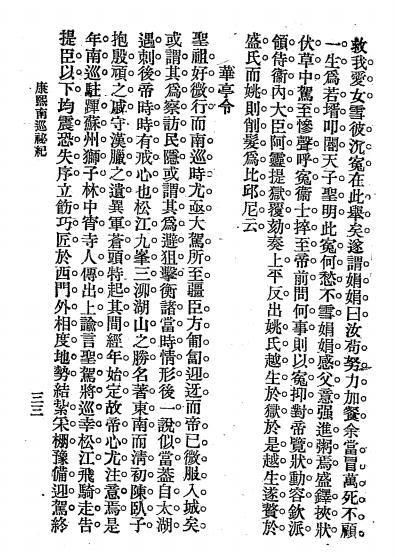 救我愛女雪彼沉冤在此舉矣遂謂娟娟曰汝荀努力加餐余當冒萬死不顧。
一生爲若壻叩閽天子聖明此冤何愁不雪娟娟感父意强進粥焉盛鐸挾狀
伏草中駕至慘聲呼冤衞士捽至帝前問何事則以冤抑對帝覽狀動容欽派
領侍衞內大臣阿靈提獄覆劾奏上平反出姚氏越生於獄於是越生遂贅於
盛氏而姚則削髮爲比邱尼云。
華亭令
聖祖好微行而南巡時尤亟大駕所至疆臣方匍匐迎迓而帝已微服入城矣。
或謂其爲察訪民隱或謂其爲避狙擊衡諸當時情形後一說似當葢自太湖
遇刺後帝時時有戒心也松江九峯三泖湖山之勝名著東南而淸初陳臥子
抱殷頑之戚守漢臘之遺異軍蒼頭特起其間經年始定故帝心尤注意焉是
年南巡駐蹕蘇州獅子林中宵寺人傳出上諭言聖駕將巡幸松江飛騎走告
提臣以下均震恐失序立飭巧匠於西門外相度地勢結紮采棚豫備迎駕終
康熙南巡祕紀
三三